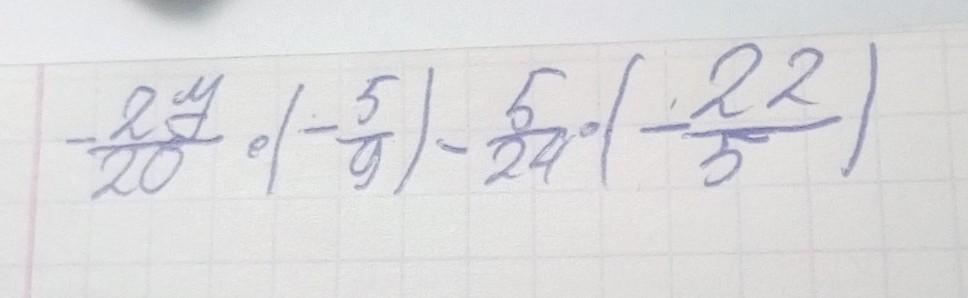 -27/20 · (-5/9) - 5/24 · (-22/5)